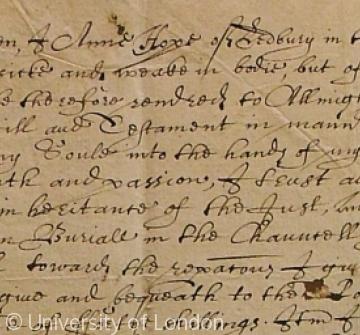 en, I Anne Hope of Ledbury in t
sicke and weake in bodie, but of
be therefore rendred to Allmigh
ill and Testament in mann
my Soule into the hands of my
ath and passion, I trust a
inheritance of the Just,
n Buriall in the Chauncell
towards the reparations I giv
give and bequeath to the Po
shillings. Itm I
© University of London